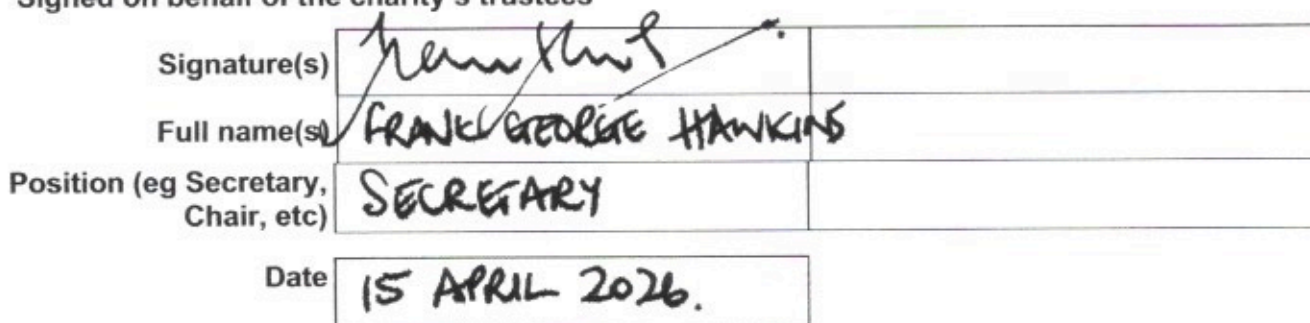 Signed on behalf of the charity's trustees
Signature(s)
Full name(s) FRANK GEORGE HAWKINS
Position (eg Secretary,
Chair, etc) SECRETARY
Date 15 APRIL 2026.